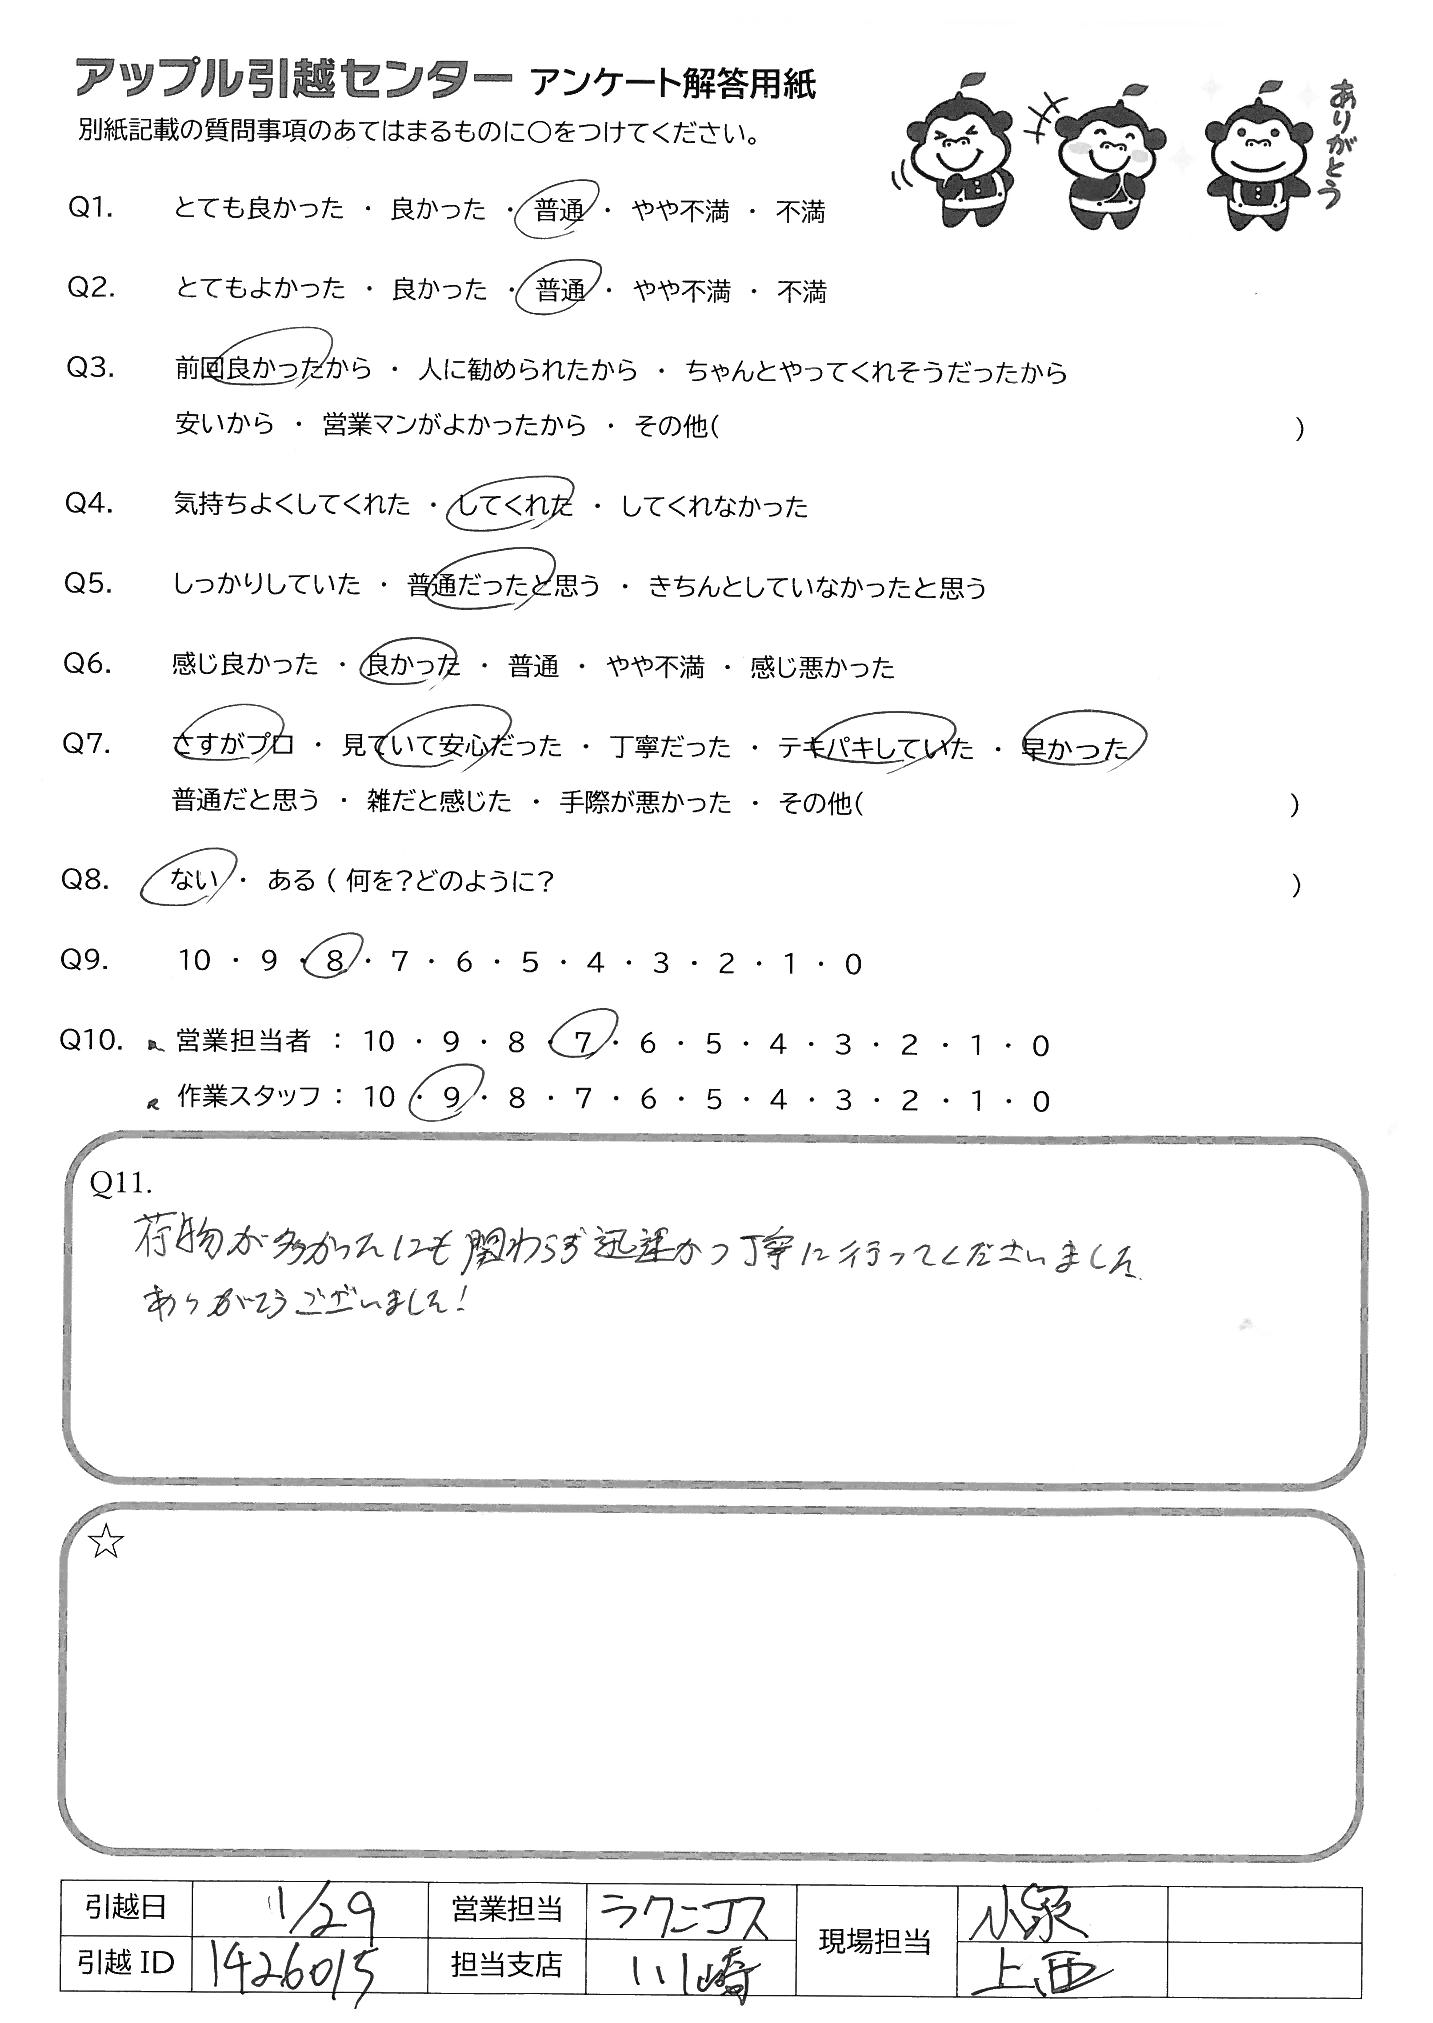 アップル引越センター アンケート解答用紙
別紙記載の質問事項のあてはまるものに○をつけてください。
ありがとう
Q1. とても良かった ・ 良かった ・ 普通 ・ やや不満 ・ 不満
Q2. とてもよかった ・ 良かった ・ 普通 ・ やや不満 ・ 不満
Q3. 前回良かったから ・ 人に勧められたから ・ ちゃんとやってくれそうだったから
安いから ・ 営業マンがよかったから ・ その他( )
Q4. 気持ちよくしてくれた ・ してくれた ・ してくれなかった
Q5. しっかりしていた ・ 普通だったと思う ・ きちんとしていなかったと思う
Q6. 感じ良かった ・ 良かった ・ 普通 ・ やや不満 ・ 感じ悪かった
Q7. さすがプロ ・ 見ていて安心だった ・ 丁寧だった ・ テキパキしていた ・ 早かった
普通だと思う ・ 雑だと感じた ・ 手際が悪かった ・ その他( )
Q8. ない ・ ある ( 何を?どのように? )
Q9. 10 ・ 9 ・ 8 ・ 7 ・ 6 ・ 5 ・ 4 ・ 3 ・ 2 ・ 1 ・ 0
Q10. 営業担当者 : 10 ・ 9 ・ 8 ・ 7 ・ 6 ・ 5 ・ 4 ・ 3 ・ 2 ・ 1 ・ 0
作業スタッフ : 10 ・ 9 ・ 8 ・ 7 ・ 6 ・ 5 ・ 4 ・ 3 ・ 2 ・ 1 ・ 0
Q11.
荷物が多かったにも関わらず迅速かつ丁寧に行ってくださいました
ありがとうございました!
☆
引越日 11/29 営業担当 ラクニコス 現場担当 小泉
引越ID 1426015 担当支店 川崎 上西